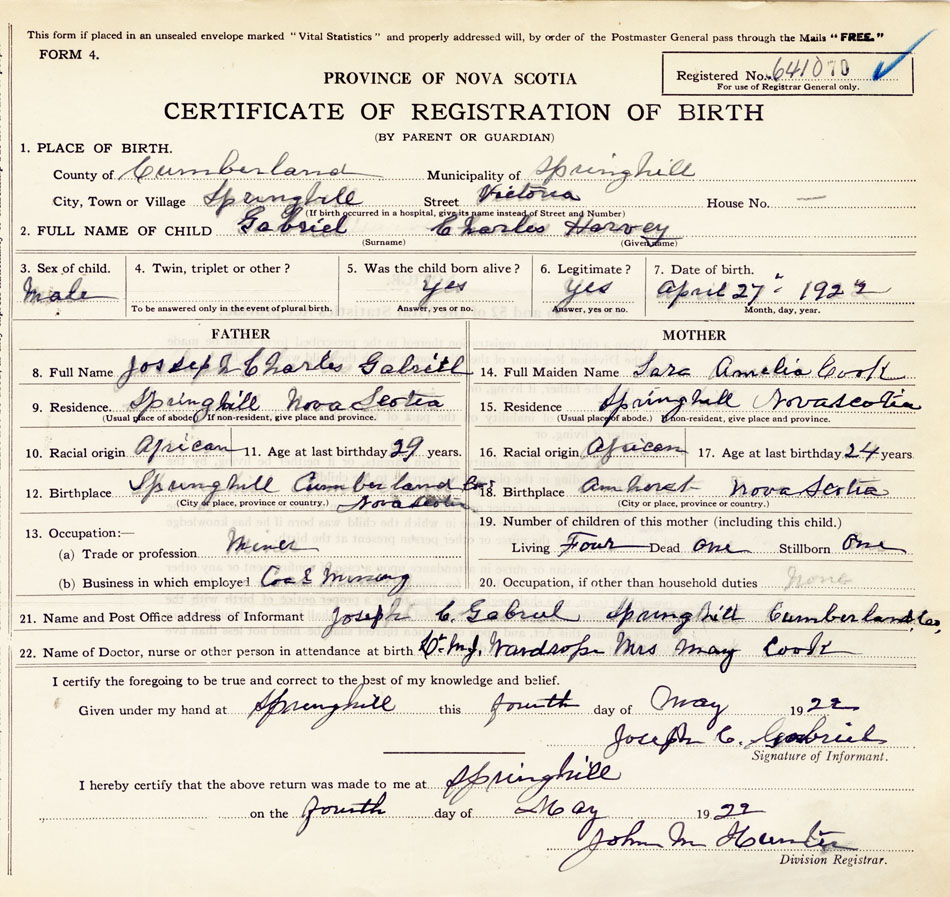 This form if placed in an unsealed envelope marked "Vital Statistics" and properly addressed will, by order of the Postmaster General pass through the Mails "FREE."
FORM 4.
Registered No. 641070
For use of Registrar General only.
PROVINCE OF NOVA SCOTIA
CERTIFICATE OF REGISTRATION OF BIRTH
(BY PARENT OR GUARDIAN)
1. PLACE OF BIRTH.
County of Cumberland Municipality of Springhill
City, Town or Village Springhill Street Victoria House No. —
(If birth occurred in a hospital, give its name instead of Street and Number)
2. FULL NAME OF CHILD Gabriel Charles Harvey
(Surname) (Given name)
3. Sex of child. 4. Twin, triplet or other? 5. Was the child born alive? 6. Legitimate? 7. Date of birth.
Male Yes Yes April 27" 1922
To be answered only in the event of plural birth. Answer, yes or no. Answer, yes or no. Month, day, year.
FATHER MOTHER
8. Full Name Joseph Charles Gabriel 14. Full Maiden Name Sara Amelia Cook
9. Residence. Springhill Nova Scotia 15. Residence Springhill Nova scotia
(Usual place of abode. If non-resident, give place and province. (Usual place of abode.) If non-resident, give place and province.
10. Racial origin African 11. Age at last birthday 29 years. 16. Racial origin African 17. Age at last birthday 24 years
12. Birthplace Springhill Cumberland Co. 18. Birthplace Amherst Nova Scotia
(City or place, province or country.) Nova Scotia (City or place, province or country.)
13. Occupation:— 19. Number of children of this mother (including this child.)
(a) Trade or profession Miner Living Four Dead One Stillborn One
(b) Business in which employed Coal Mining 20. Occupation, if other than household duties None
21. Name and Post Office address of Informant Joseph C. Gabriel Springhill Cumberland Co,
22. Name of Doctor, nurse or other person in attendance at birth Dr. M.J. Wardrope Mrs May Cook
I certify the foregoing to be true and correct to the best of my knowledge and belief.
Given under my hand at Springhill this fourth day of May 1922
Joseph C. Gabriel
Signature of Informant.
I hereby certify that the above return was made to me at Springhill
on the fourth day of May 1922
John M Hunter
Division Registrar.